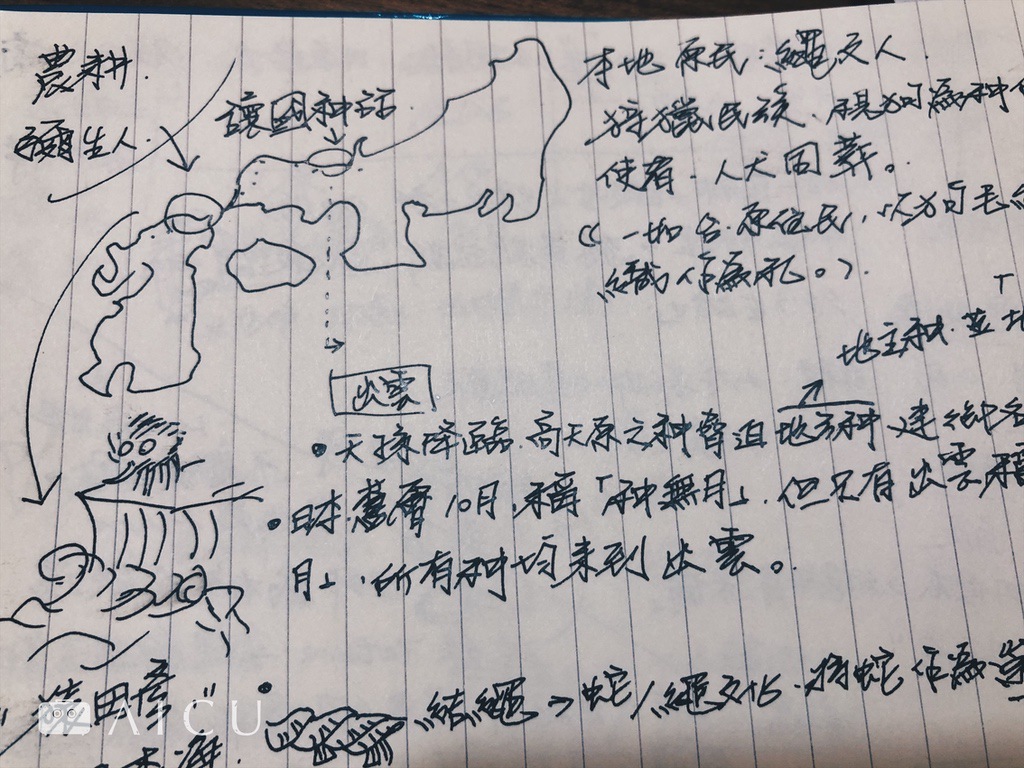 農耕.
彌生人.
讓國神話
本地原民：繩文人.
狩獵民族. 視狗為神
使者. 人犬同葬。
(( 一如台.原住民, 以狗毛
織作為礼。)).
地主神. 並
出雲
• 天孫降臨. 高天原之神脅迫地方神. 建
• 日本. 舊曆10月, 稱「神無月」. 但只有出雲稱
月」, 所有神均來到出雲。
• 結繩 → 蛇/繩文化. 將蛇作為
田彥"
AICU